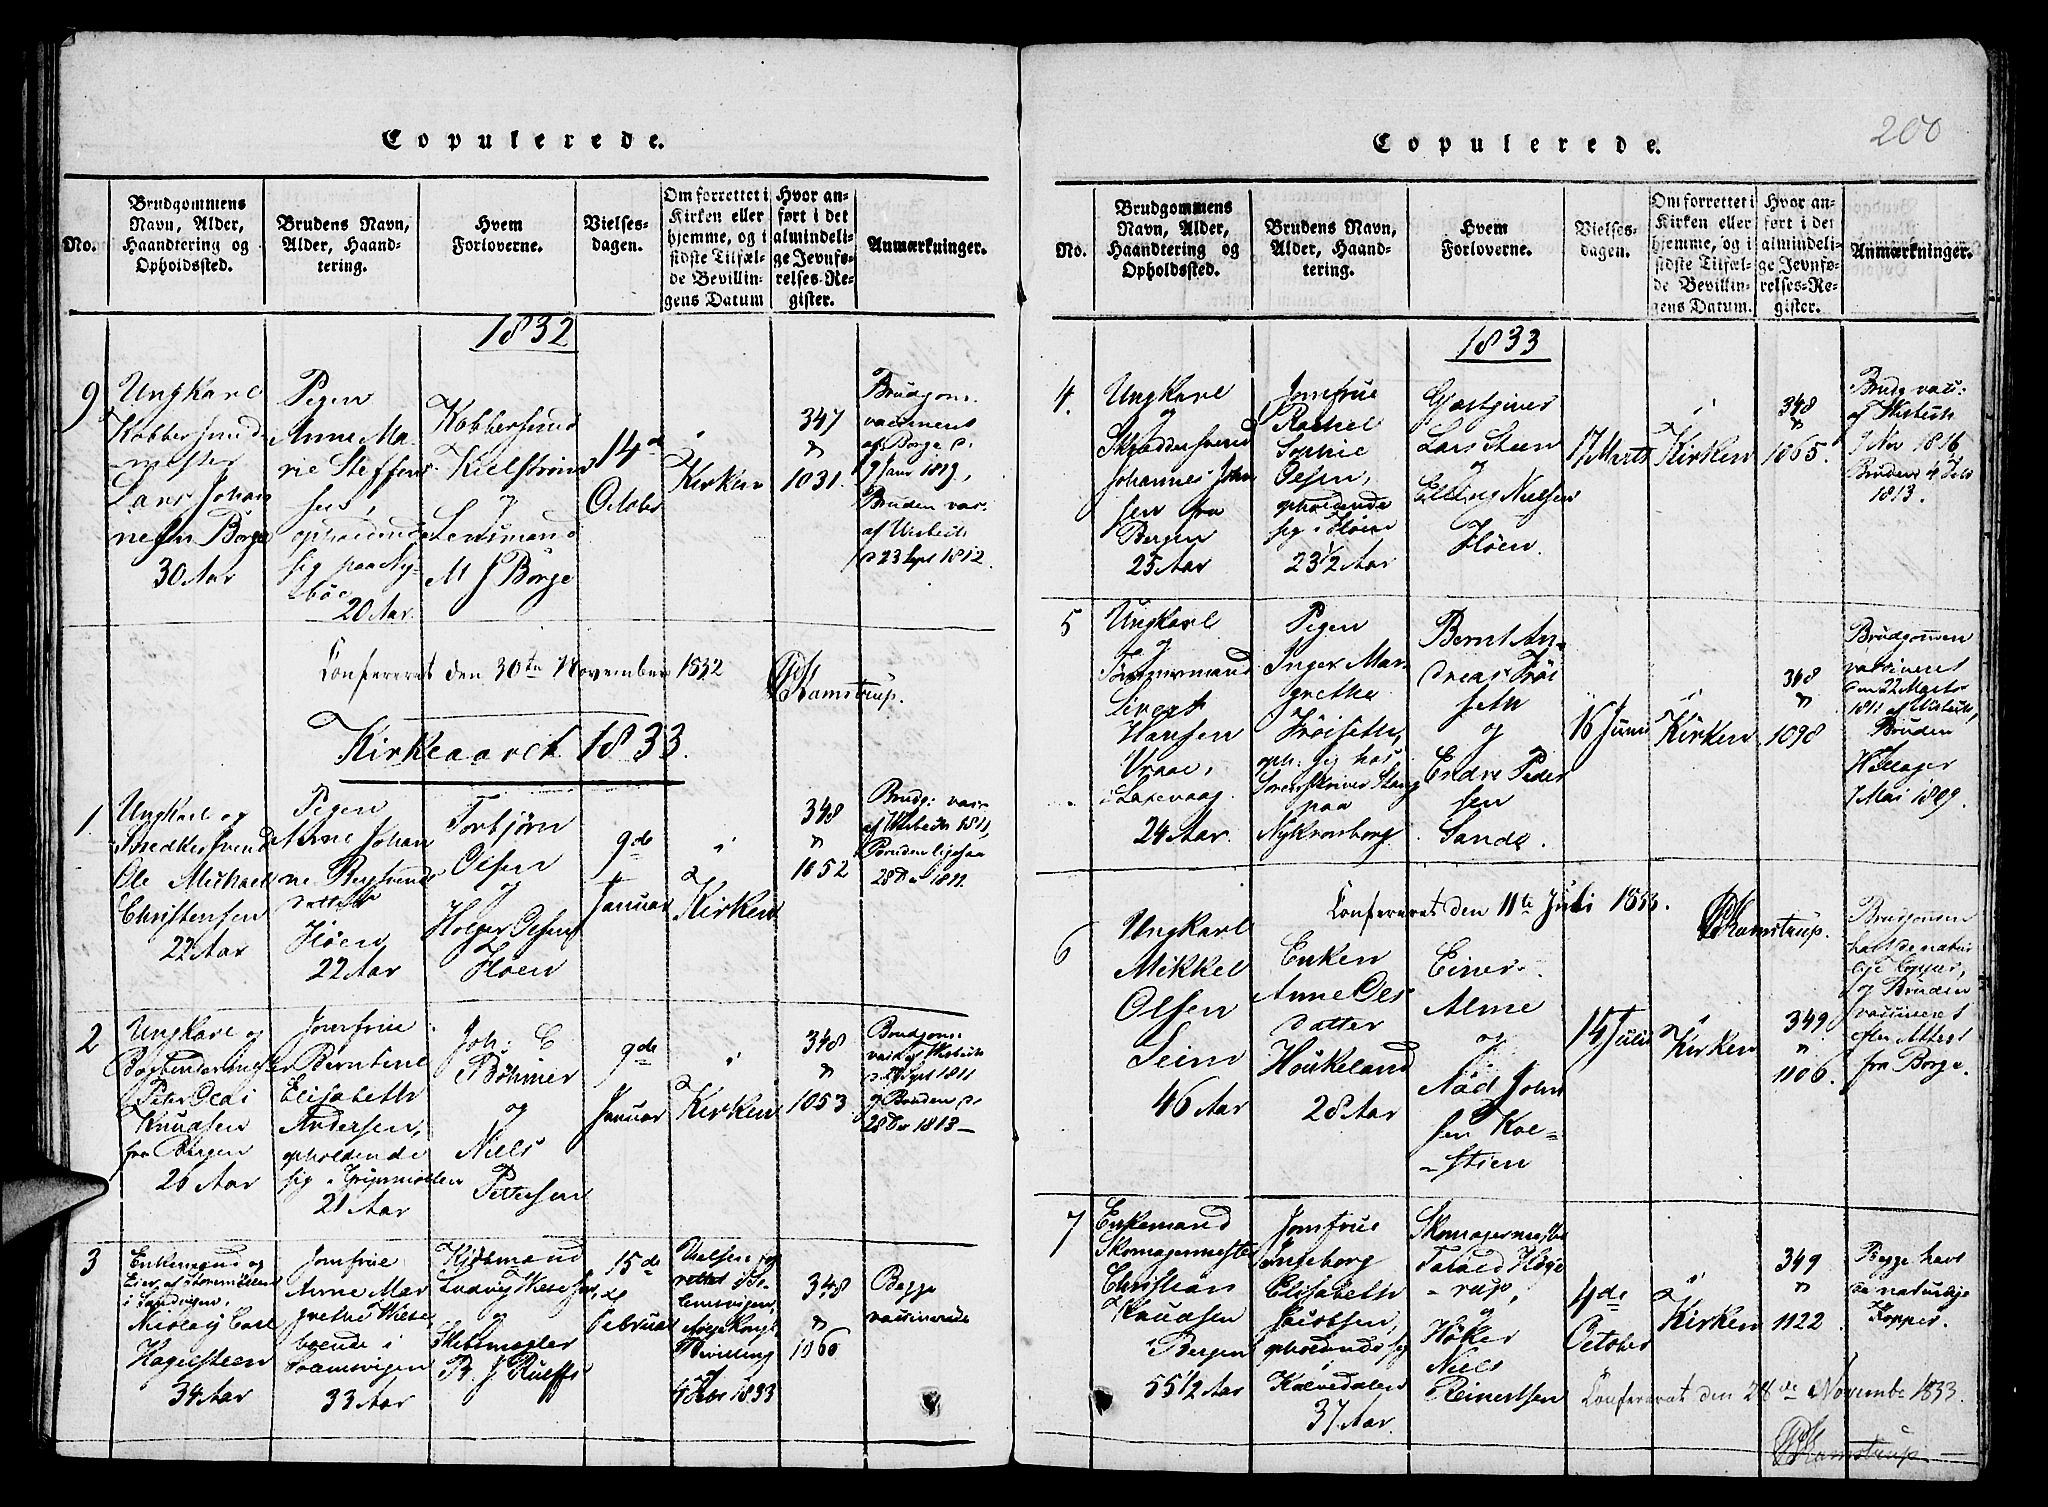 Copulerede.
No.
Brudgommens
Navn, Alder,
Haandtering og
Opholdssted.
Brudens Navn,
Alder, Haand-
tering.
Hvem
Forloverne.
Vielses-
dagen.
Om forrettet i
Kirken eller
hjemme, og i
sidste Tilfæl-
de Bevillin-
gens Datum
Hvor an-
ført i det
almindeli-
ge Jevnfø-
relses-Re-
gister.
Anmærkninger.
1832
9
Ungkarl
Kobbersmed-
mester
Lars Johan
nesen Borge
30 Aar
Pigen
Anne Ma-
rie Steffens
sen,
opholdende
sig paa Ny-
bøe
20 Aar.
Kobbersmed
Kielstrøm
og
Lensmand
M J Borge
14de
October
i
Kirken
347
"
1031.
Brudgom:
vaccineret
af Borge
9 Janr 1819,
Bruden vac.
af Wisbech
23 Sept 1812.
Confereret den 30te November 1832
Ramstrup.
Kirkeaaret 1833.
1.
Ungkarl og
Snedkersvend
Ole Michael
Christensen
22 Aar
Pigen
Anne Johan
ne Bertsends
datter
Fløen
22 Aar
Torbjørn
Olsen
og
Holger Olsen
Fløen
9de
Januar
i
Kirken
348
"
1052
Brudg: vac:
af Wisbech 1811,
Bruden ligesaa
28 Dr 1811.
2
Ungkarl og
Bogbindermester
Peter Oedi
Knudsen
fra Bergen
26 Aar
Jomfrue
Berntine
Elisabeth
Andersen,
opholdende
sig i Gripsmøllen
21 Aar
Joh: E
Böhmer
og
Niels
Pettersen
9de
Januar
i
Kirken
348
"
1053
Brudgom:
vac: af Wisbech
Sept 1811
og Bruden
28 Dr 1813
3
Enkemand og
Eier af Storemøllen
i Sandvigen,
Nicolay Carl
Hagelsteen
34 Aar
Jomfrue
Anne Mar
grethe Wiese
boende i
33 Aar
Kjøbmand
Ludvig Wiese
og
Skibsmægler
15de
Februar
Vielsen for
rettet
ifølge Kongl:
Bevilling
af
4 Febr 1833
348
"
1060
Begge
vaccinerede
Copulerede.
200
No.
Brudgommens
Navn, Alder,
Haandtering og
Opholdssted.
Brudens Navn,
Alder, Haand-
tering.
Hvem
Forloverne.
Vielses-
dagen.
Om forrettet i
Kirken eller
hjemme, og i
sidste Tilfæl-
de Bevillin-
gens Datum.
Hvor an-
ført i det
almindeli-
ge Jevnfø-
relses-Re-
gister.
Anmærkninger.
1833
4.
Ungkarl
og
Skræddersvend
Johannes John
sen fra
Bergen
25 Aar
Jomfrue
Rachel
Sophie
Olsen,
opholdende
sig i Fløen
23 1/2 Aar
Gjæstgiver
Lars Steen
og
Elling Nielsen
Fløen.
17 Marts
i
Kirken
348
"
1065.
Brudg vac:
af Wisbech
1 Nov 1816
Bruden 4 Feb
1813.
5
Ungkarl
og
Tømmermand
Sivert
Hansen
Vraae,
i Laxevaag
24 Aar.
Pigen
Inger Mar
grethe
Trøiseth,
oph: sig hos
Sorenskriver Stang
paa
Nykronborg.
Bernt An-
dreas Trøi
seth
og
Endre Peder
sen
Sande.
16 Juni
i
Kirken
348
"
1098
Brudgommen
vaccineret
den 22 Marts
1811 af Wisbech,
Bruden
Hillager
1 Mai 1809.
Confereret den 11te Juli 1833.
Ramstrup.
6
Ungkarl
Mikkel
Olsen
Seim
46 Aar
Enken
Anne Ols
datter
Houkeland
28 Aar
Einer
Alme
og
John
sen Kol-
stien
14 Juli
i
Kirken
349.
"
1106.
Brudgommen
havt de natur
lige Kopper,
og Bruden
vaccineret
efter Attest
fra Borge.
7
Enkemand
Skomagermester
Christian
Knudsen
Bergen
55 1/2 Aar
Jomfrue
Ingeborg
Elisabeth
Jacobsen,
opholdende sig
Kalvedalen
37 Aar.
Skomagermester
Høye
rup,
og
Høker
Niels
Reinertsen
4de
October
i
Kirken
349
"
1122
Begge havt
de naturlige
Kopper.
Confereret den 28de Novembr 1833.
Ramstrup